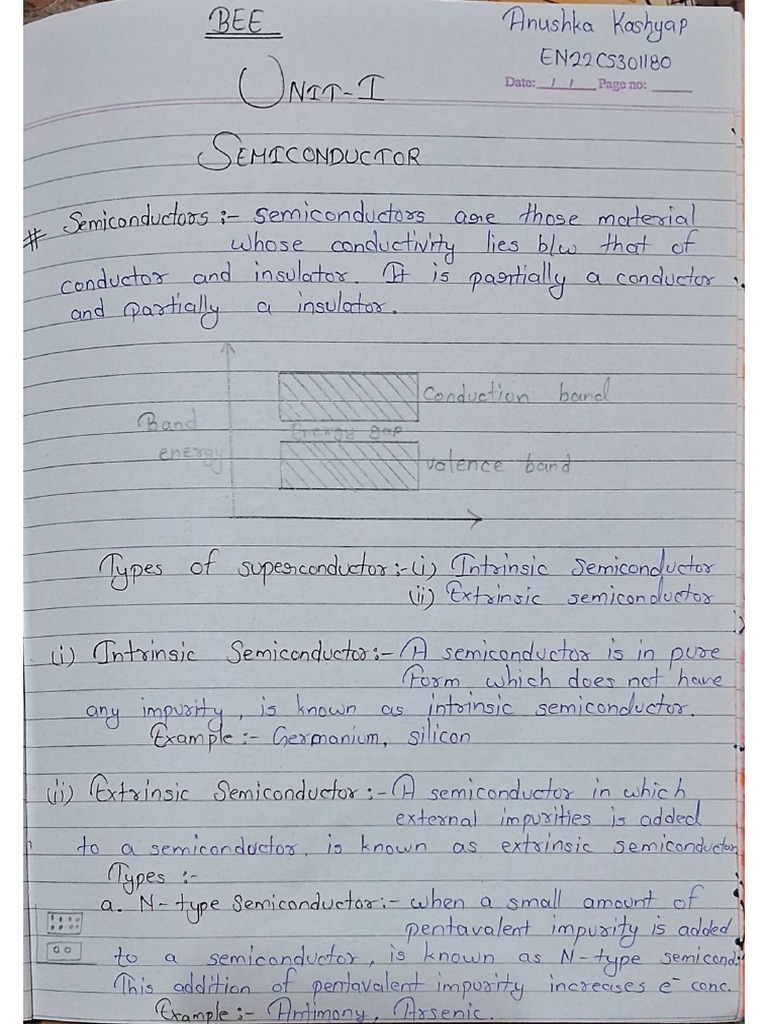 BEE
Anushka Kashyap
EN22CS301180
Date: / / Page no:
UNIT-I
SEMICONDUCTOR
# Semiconductors :- semiconductors are those material
whose conductivity lies b/w that of
conductor and insulator. It is partially a conductor
and partially a insulator.
Conduction band
Band
energy
Energy gap
valence band
Types of superconductor :- (i) Intrinsic Semiconductor
(ii) Extrinsic semiconductor
(i) Intrinsic Semiconductor :- A semiconductor is in pure
form which does not have
any impurity, is known as intrinsic semiconductor.
Example :- Germanium, silicon
(ii) Extrinsic Semiconductor :- A semiconductor in which
external impurities is added
to a semiconductor, is known as extrinsic semiconductor
Types :-
a. N-type Semiconductor :- when a small amount of
pentavalent impurity is added
to a semiconductor, is known as N-type semicond.
This addition of pentavalent impurity increases e⁻ conc.
Example :- Antimony, Arsenic.